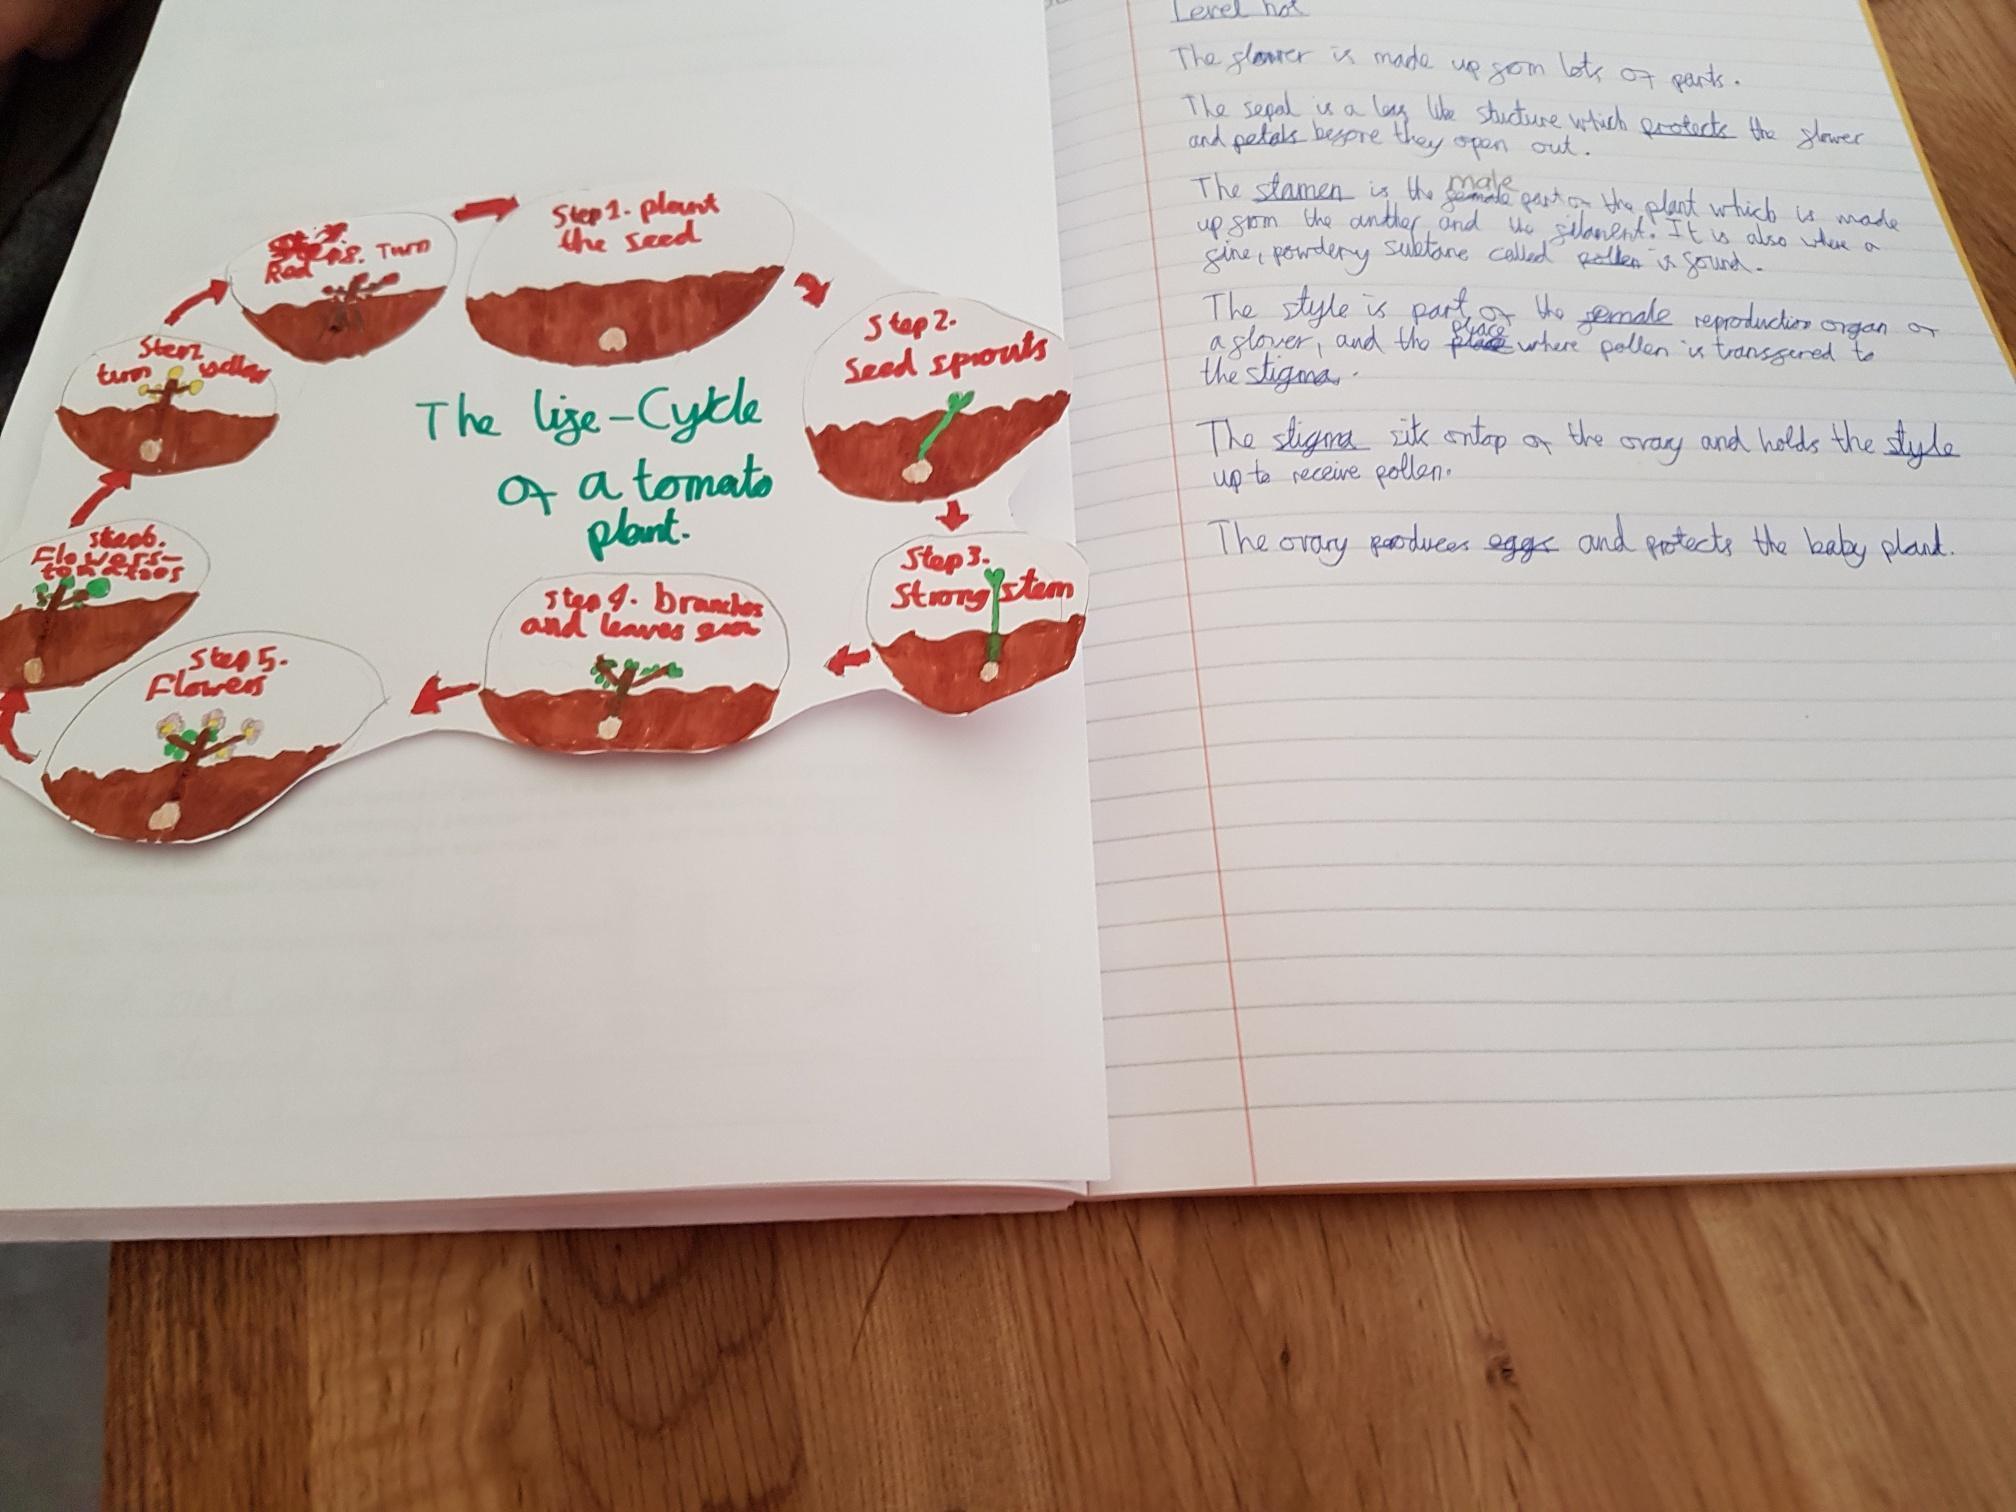 The life-Cycle
of a tomato
plant.
Step 1. plant
the seed
Step 2.
Seed sprouts
Step 3.
Strong stem
Step 4. branches
and leaves
Step 5.
Flowers
Step 6.
Flowers-
tomatoes
Step 7
turn
Step 8. Turn
Red
Level hot
The flower is made up from lots of parts.
The sepal is a leaf like structure which protects the flower
and petals before they open out.
The stamen is the male part of the plant which is made
up from the anther and the filament. It is also where a
fine, powdery subtane called pollen is found.
The style is part of the female reproduction organ of
a flower, and the place where pollen is transfered to
the stigma.
The stigma sits ontop of the ovary and holds the style
up to receive pollen.
The ovary produces eggs and protects the baby plant.